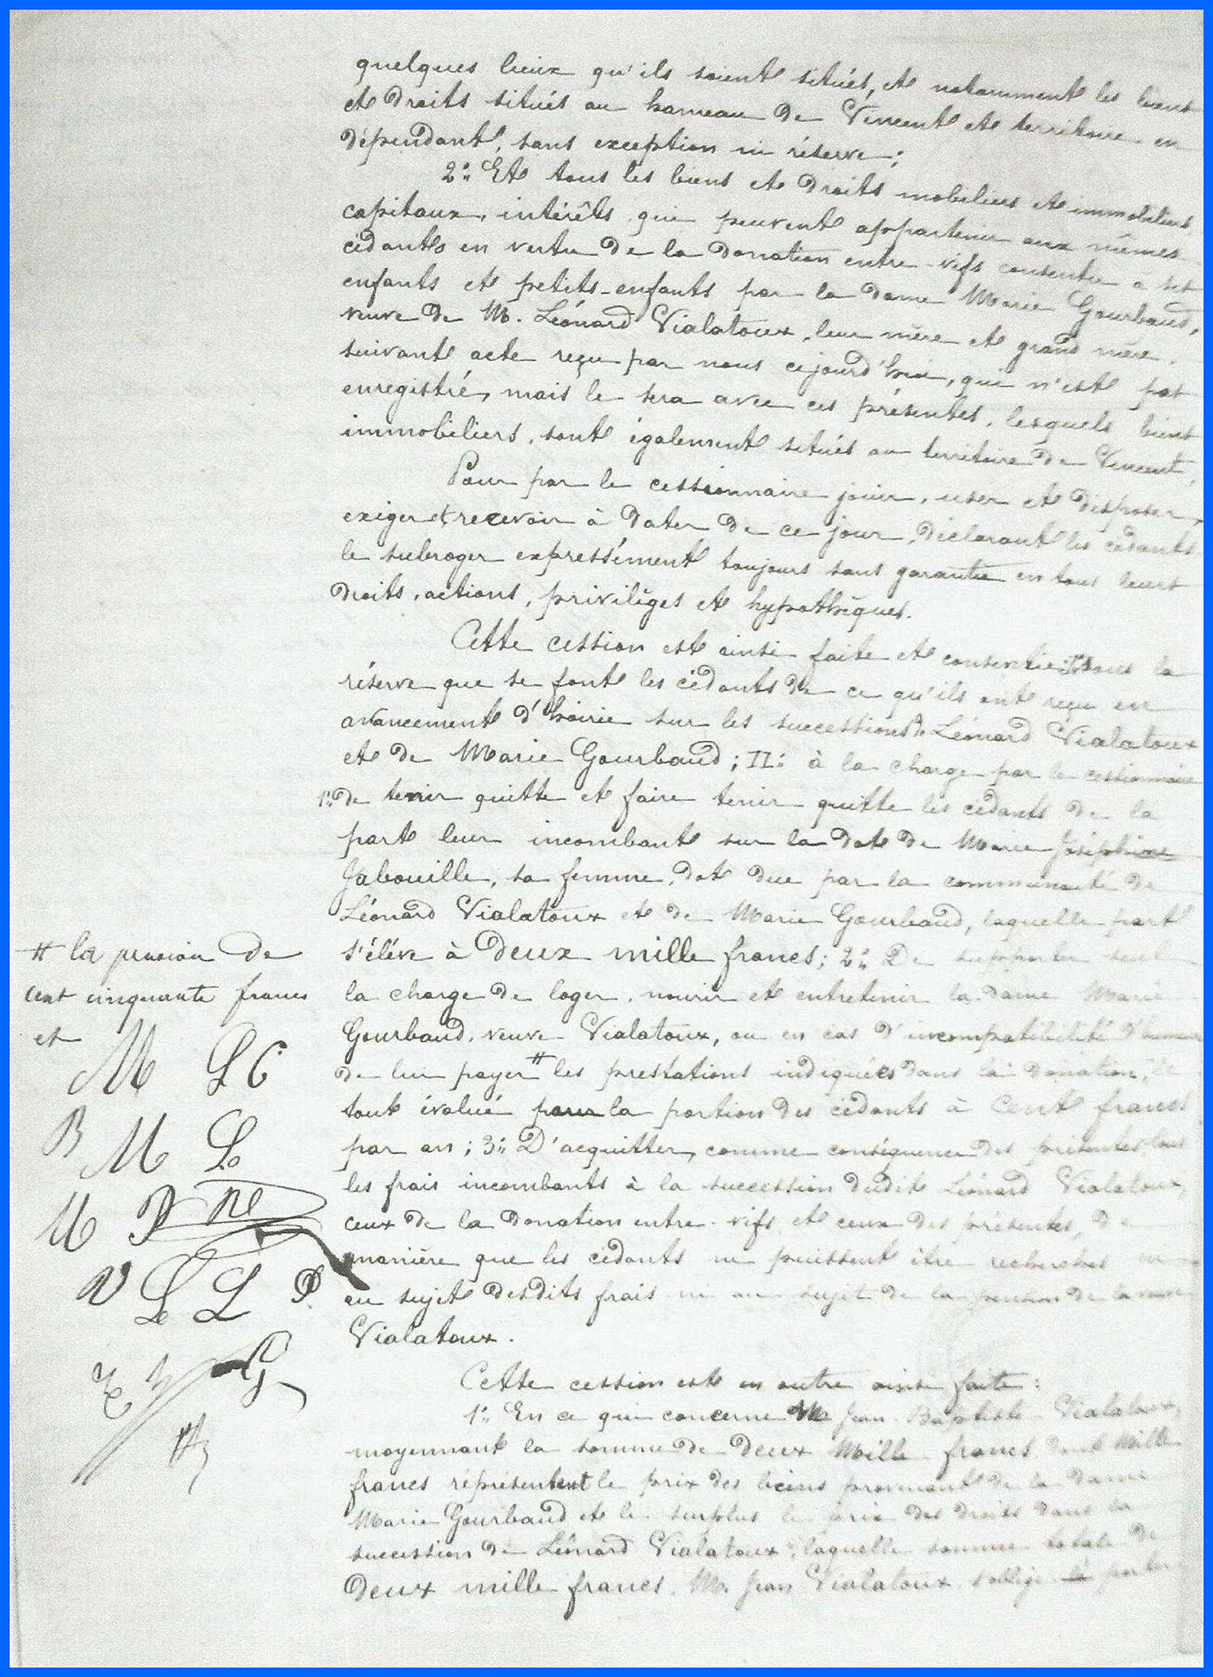 quelques lieux qu'ils soient situés, et notamment les biens
et droits situés au hameau de Vincent et territoire en
dépendant, sans exception ni réserve ;
2° Et tous les biens et droits mobiliers et immobiliers
capitaux, intérêts qui peuvent appartenir aux mêmes
cédants en vertu de la donation entre-vifs consentie à ses
enfants et petits-enfants par la dame Marie Gourbaud,
veuve de M. Léonard Vialatoux, leur mère et grand mère,
suivant acte reçu par nous cejourd'hui, qui n'est pas
enregistré, mais le sera avec ces présentes, lesquels biens
immobiliers, sont également situés au territoire de Vincent,
Pour par le cessionnaire jouir, user et disposer,
exiger et recevoir à dater de ce jour, déclarant les cédants
le subroger expressément toujours sans garantie en tous leurs
droits, actions, privilèges et hypothèques.
Cette cession est ainsi faite et consentie : I° sous la
réserve que se font les cédants de ce qu'ils ont reçu en
avancement d'hoirie sur les successions de Léonard Vialatoux
et de Marie Gourbaud ; II° à la charge par le cessionnaire
1° de tenir quitte et faire tenir quitte les cédants de la
part leur incombant sur la dot de Marie Joséphine
Jabouille, sa femme, dot due par la communauté de
Léonard Vialatoux et de Marie Gourbaud, laquelle part
s'élève à deux mille francs ; 2° De supporter seul
la charge de loger, nourir et entretenir la dame Marie
Gourbaud, veuve Vialatoux, ou en cas d'incompatibilité d'humeur
de lui payer # les prestations indiquées dans la donation, le
tout évalué pour la portion des cédants à Cent francs
par an ; 3° D'acquitter, comme conséquence des présentes, tous
les frais incombants à la succession dudit Léonard Vialatoux,
ceux de la donation entre-vifs et ceux des présentes, de
manière que les cédants ne puissent être recherchés ni
au sujet desdits frais ni au sujet de la pension de la veuve
Vialatoux.
Cette cession est en outre ainsi faite :
1° En ce qui concerne M Jean Baptiste Vialatoux,
moyennant la somme de deux Mille francs dont Mille
francs représentent le prix des biens provenant de la dame
Marie Gourbaud et le surplus le prix des droits dans la
succession de Léonard Vialatoux ; laquelle somme totale de
deux mille francs, M. Jean Vialatoux s'oblige
# la pension de
cent cinquante francs
et
M L C
B M L
M P
V L L P
G